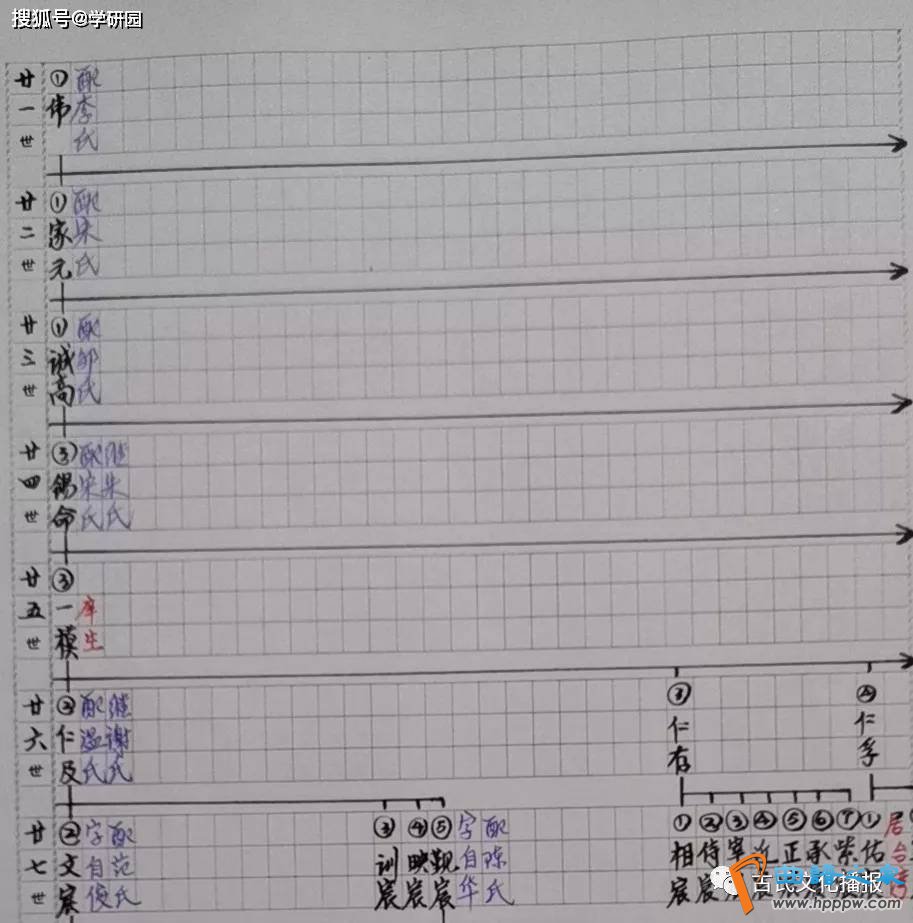 搜狐号@学研园
廿一世
①伟
配李氏
廿二世
①家元
配宋氏
廿三世
①诚高
配邹氏
廿四世
③锡命
配宋氏
继朱氏
廿五世
③一模
庠生
廿六世
②仁及
配温氏
继谢氏
③仁存
④仁孚
廿七世
②文宸
字自俊
配范氏
③训宸
④映宸
⑤觐宸
字自华
配陈氏
①相宸
②侍宸
③
④
⑤正
⑥承
⑦紫
①佑
居台湾
百氏文化播报
www.hpppw.com